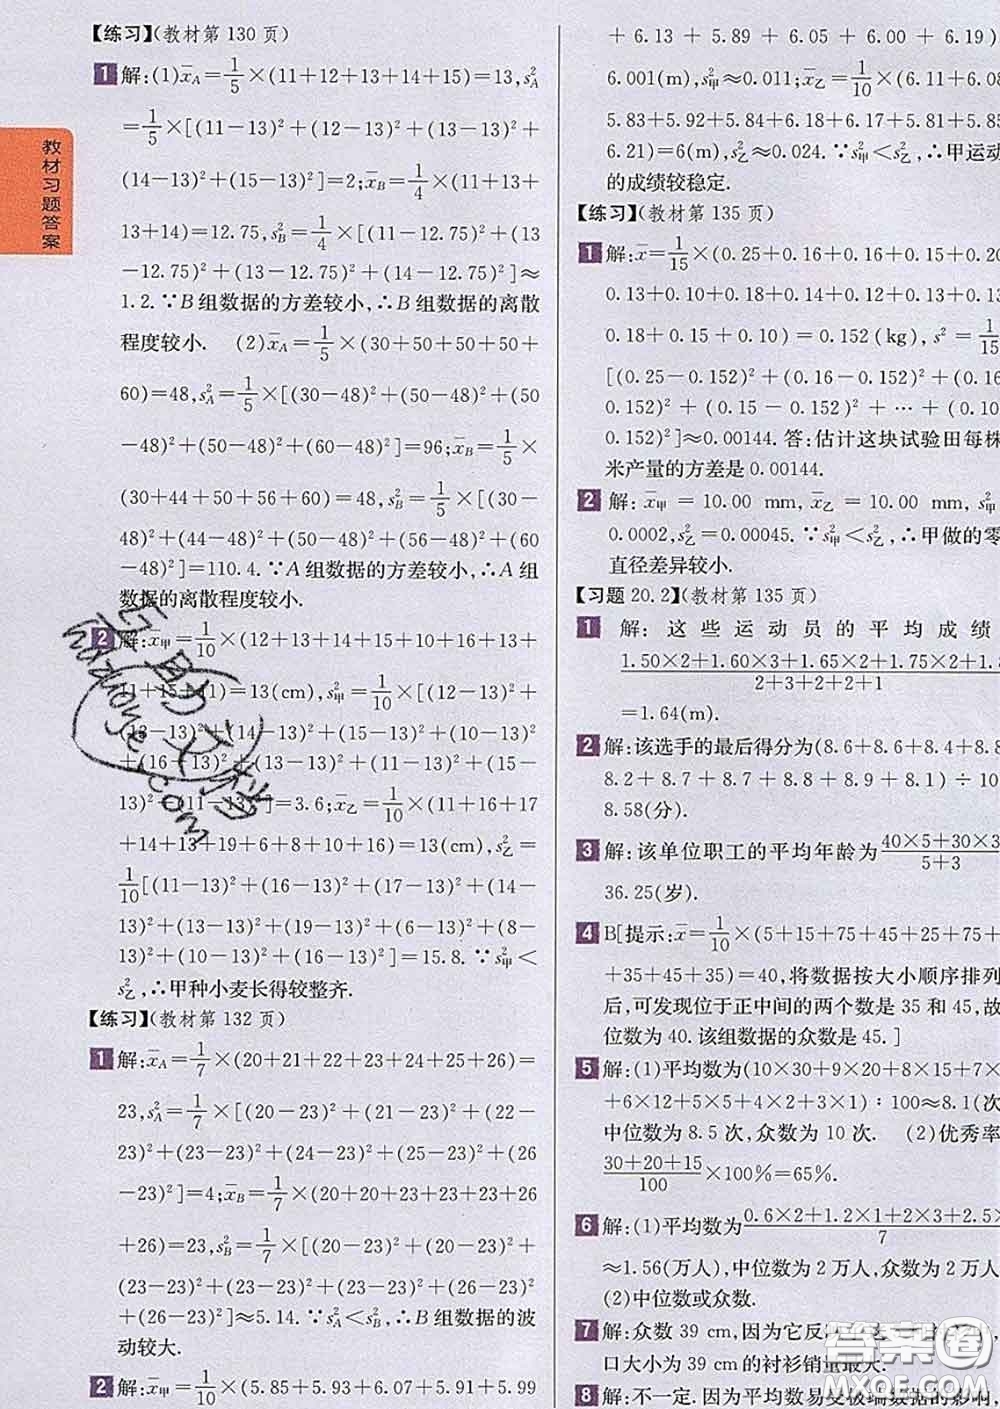 教材习题答案
【练习】(教材第 130 页)
1 解:(1)x̄A=1/5×(11+12+13+14+15)=13,s²A
=1/5×[(11-13)²+(12-13)²+(13-13)²+
(14-13)²+(15-13)²]=2;x̄B=1/4×(11+13+
13+14)=12.75,s²B=1/4×[(11-12.75)²+(13
-12.75)²+(13-12.75)²+(14-12.75)²]≈
1.2.∵B 组数据的方差较小,∴B 组数据的离散
程度较小. (2)x̄A=1/5×(30+50+50+50+
60)=48,s²A=1/5×[(30-48)²+(50-48)²+(50
-48)²+(50-48)²+(60-48)²]=96;x̄B=1/5×
(30+44+50+56+60)=48,s²B=1/5×[(30-
48)²+(44-48)²+(50-48)²+(56-48)²+(60
-48)²]=110.4.∵A 组数据的方差较小,∴A 组
数据的离散程度较小.
2 解:x̄甲=1/10×(12+13+14+15+10+16+13+
11+15+11)=13(cm),s²甲=1/10×[(12-13)²+
(13-13)²+(14-13)²+(15-13)²+(10-13)²
+(16-13)²+(13-13)²+(11-13)²+(15-
13)²+(11-13)²]=3.6;x̄乙=1/10×(11+16+17
+14+13+19+6+8+10+16)=13(cm),s²乙=
1/10[(11-13)²+(16-13)²+(17-13)²+(14-
13)²+(13-13)²+(19-13)²+(6-13)²+(8-
13)²+(10-13)²+(16-13)²]=15.8.∵s²甲<
s²乙,∴甲种小麦长得较整齐.
【练习】(教材第 132 页)
1 解:x̄A=1/7×(20+21+22+23+24+25+26)=
23,s²A=1/7×[(20-23)²+(21-23)²+(22-
23)²+(23-23)²+(24-23)²+(25-23)²+(26
-23)²]=4;x̄B=1/7×(20+20+23+23+23+26
+26)=23,s²B=1/7×[(20-23)²+(20-23)²+
(23-23)²+(23-23)²+(23-23)²+(26-23)²
+(26-23)²]≈5.14.∵s²A<s²B,∴B 组数据的波
动较大.
2 解:x̄甲=1/10×(5.85+5.93+6.07+5.91+5.99
+6.13+5.89+6.05+6.00+6.19)
6.001(m),s²甲≈0.011;x̄乙=1/10×(6.11+6.08
5.83+5.92+5.84+6.18+6.17+5.81+5.85
6.21)=6(m),s²乙≈0.024.∵s²甲<s²乙,∴甲运动
的成绩较稳定.
【练习】(教材第 135 页)
1 解:x̄=1/15×(0.25+0.16+0.16+0.15+0.20
0.13+0.10+0.18+0.14+0.12+0.10+0.13
0.18+0.15+0.10)=0.152(kg),s²=1/15
[(0.25-0.152)²+(0.16-0.152)²+(0.16
0.152)²+(0.15-0.152)²+…+(0.10
0.152)²]≈0.00144.答:估计这块试验田每株
米产量的方差是 0.00144.
2 解:x̄甲=10.00 mm,x̄乙=10.00 mm,s²甲
0.0002,s²乙=0.00045.∵s²甲<s²乙,∴甲做的零
直径差异较小.
【习题 20.2】(教材第 135 页)
1 解:这些运动员的平均成绩
(1.50×2+1.60×3+1.65×2+1.75×2+1.8)/(2+3+2+2+1)
=1.64(m).
2 解:该选手的最后得分为(8.6+8.6+8.4+8.8
8.2+8.7+8.7+8.8+8.9+8.1)÷10
8.58(分).
3 解:该单位职工的平均年龄为(40×5+30×3)/(5+3)
36.25(岁).
4 B[提示:x̄=1/10×(5+15+75+45+25+75+
+35+45+35)=40,将数据按大小顺序排列
后,可发现位于正中间的两个数是 35 和 45,故
位数为 40.该组数据的众数是 45.]
5 解:(1)平均数为(10×30+9×20+8×15+7×
+6×12+5×5+4×3+3×2):100≈8.1(次
中位数为 8.5 次,众数为 10 次. (2)优秀率
(30+20+15)/100×100%=65%.
6 解:(1)平均数为(0.6×2+1.2×1+2×3+2.5×)/7
≈1.56(万人),中位数为 2 万人,众数为 2 万人
(2)中位数或众数.
7 解:众数 39 cm,因为它反
口大小为 39 cm 的衬衫销量最大.
8 解:不一定.因为平均数易受极端数据的影响,
答案圈
MXQE.COM